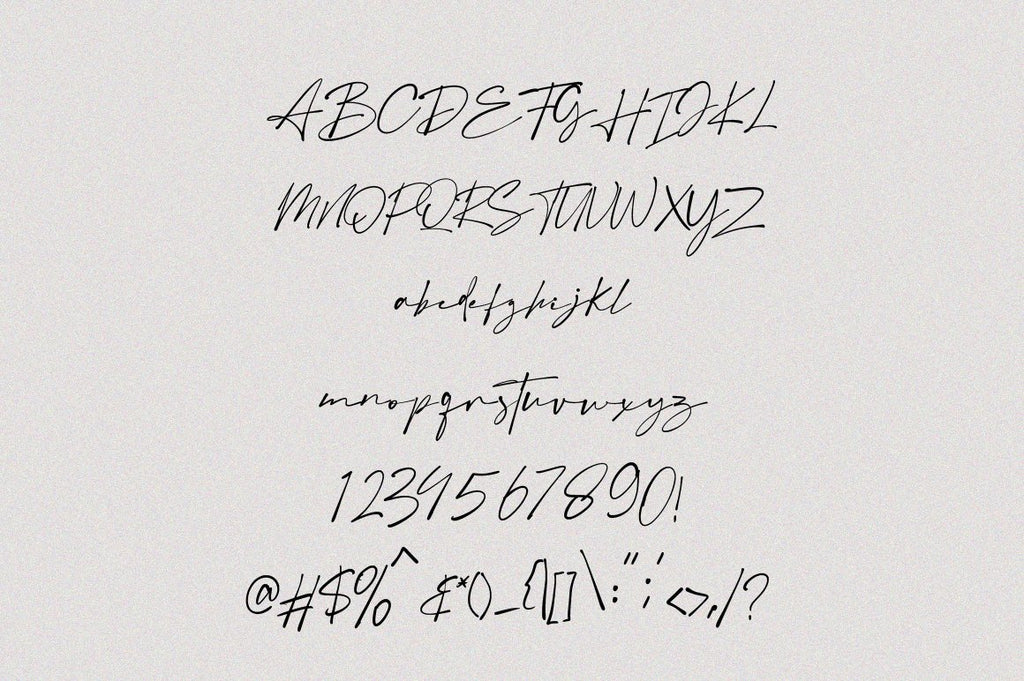 ABCDEFGHIJKL
MNOPQRSTUVWXYZ
abcdefghijkl
mnopqrstuvwxyz
1234567890!
@#$%^&*()_{|[]\:";'<>,/?